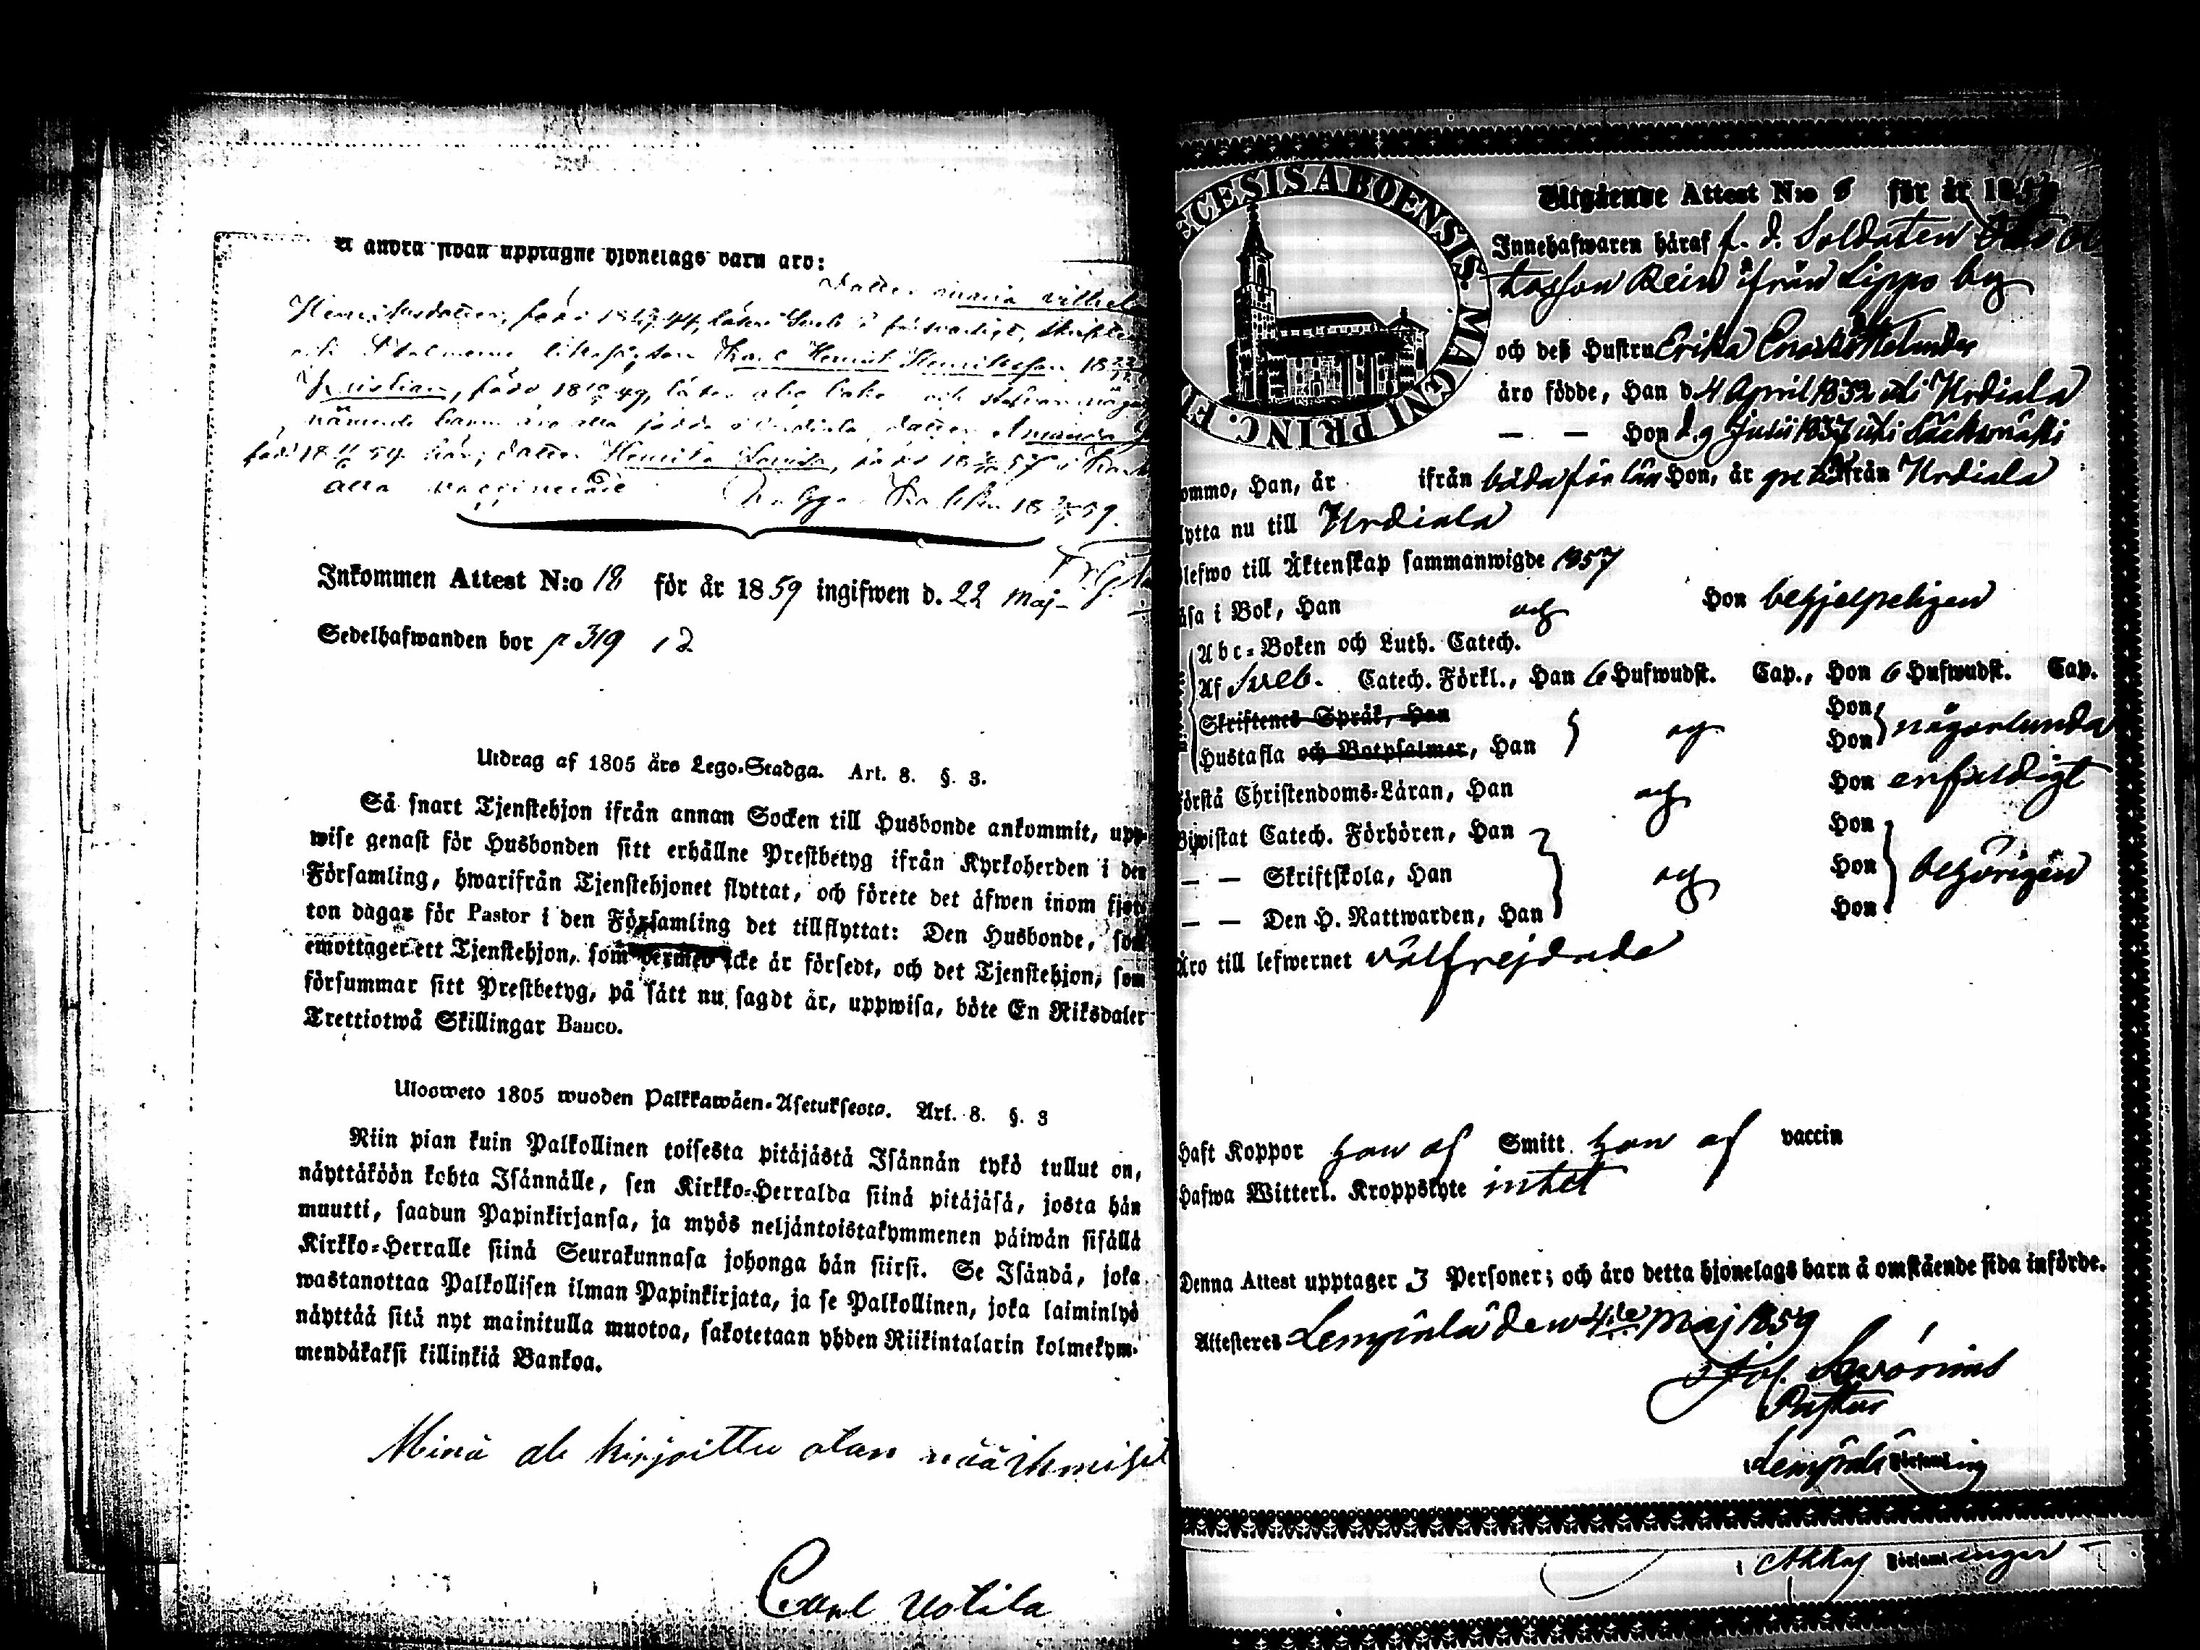 å andra sidan upptagne hjonelags barn äro:
Dotter Maria Vilhel
Henriksdotter, född 18 44, läser Sveb. i försvarligt,
Karl Henrik Henriksson 18
Kristian, född 18 49, läser abc boken och
nämnde barn äro alla födda i Urdiala, dotter Amanda
född 18 54 här, dotter Henrika Lovisa, född 18 57 i
alla vaccinerade 18 59.
Inkommen Attest N:o 18 för år 1859 ingifwen d. 22 Maj
Sedelhafwanden bor p 319
Utdrag af 1805 års Lego-Stadga. Art. 8. §. 3.
Så snart Tjenstehjon ifrån annan Socken till Husbonde ankommit, upp-
wise genast för Husbonden sitt erhållne Prestbetyg ifrån Kyrkoherden i den
Församling, hwarifrån Tjenstehjonet flyttat, och förete det äfwen inom fjor-
ton dagar för Pastor i den Församling det tillflyttat: Den Husbonde, som
emottager ett Tjenstehjon, som dermed icke är försedt, och det Tjenstehjon, som
försummar sitt Prestbetyg, på sätt nu sagdt är, uppwisa, böte En Riksdaler
Trettiotwå Skillingar Banco.
Uloosweto 1805 wuoden Palkkawäen-Asetuksesta. Art. 8. §. 3
Niin pian kuin Palkollinen toisesta pitäjästä Isännän tykö tullut on,
näyttäköön kohta Isännälle, sen Kirkko-Herralda siinä pitäjäsä, josta hän
muutti, saadun Papinkirjansa, ja myös neljäntoistakymmenen päiwän sisällä
Kirkko-Herralle siinä Seurakunnasa johonga hän siirsi. Se Isändä, joka
wastanottaa Palkollisen ilman Papinkirjata, ja se Palkollinen, joka laiminlyö
näyttää sitä nyt mainitulla muotoa, sakotetaan yhden Riikintalarin kolmekym-
mendäkaksi killinkiä Bankoa.
Minä ale kirjoittu otan nää ihmiset
Carl Uotila
ECESIS ABOENSIS. MAGNI PRINC. FI
Utgående Attest N:o 6 för år 1859
Innehafwaren häraf f. d. Soldaten Otto Ot
tosson Rein ifrån Lippo by
och dess Hustru Erika
äro födde, Han d. 4 April 1832 uti Urdiala
— — Hon d. 9 Julii 1837 uti Sääksmäki
ommo, Han, år ifrån båda för Hon, år ifrån Urdiala
lytta nu till Urdiala
lefwo till Äktenskap sammanwigde 1857
äsa i Bok, Han och Hon behjelpeligen
Abc-Boken och Luth. Catech.
Af Sveb. Catech. Förkl., Han 6 Hufwudst. Cap., Hon 6 Hufwudst. Cap.
Skriftenes Språk, Han Hon
Hustafla och Botpsalmer, Han och Hon någorlunda
Förstå Christendoms-Läran, Han och Hon enfaldigt
Biwistat Catech. Förhören, Han Hon
— — Skriftskola, Han och Hon behörigen
— — Den H. Nattwarden, Han Hon
Äro till lefwernet välfrejdade
Haft Koppor han af Smitt hon af vaccin
Hafwa Witterl. Kroppslyte intet
Denna Attest upptager 3 Personer; och äro detta hjonelags barn å omstående sida införde.
Attesteres Lempäälä den 4:de Maj 1859
Pastor
Lempäälä Församling
Akkas Församlingar